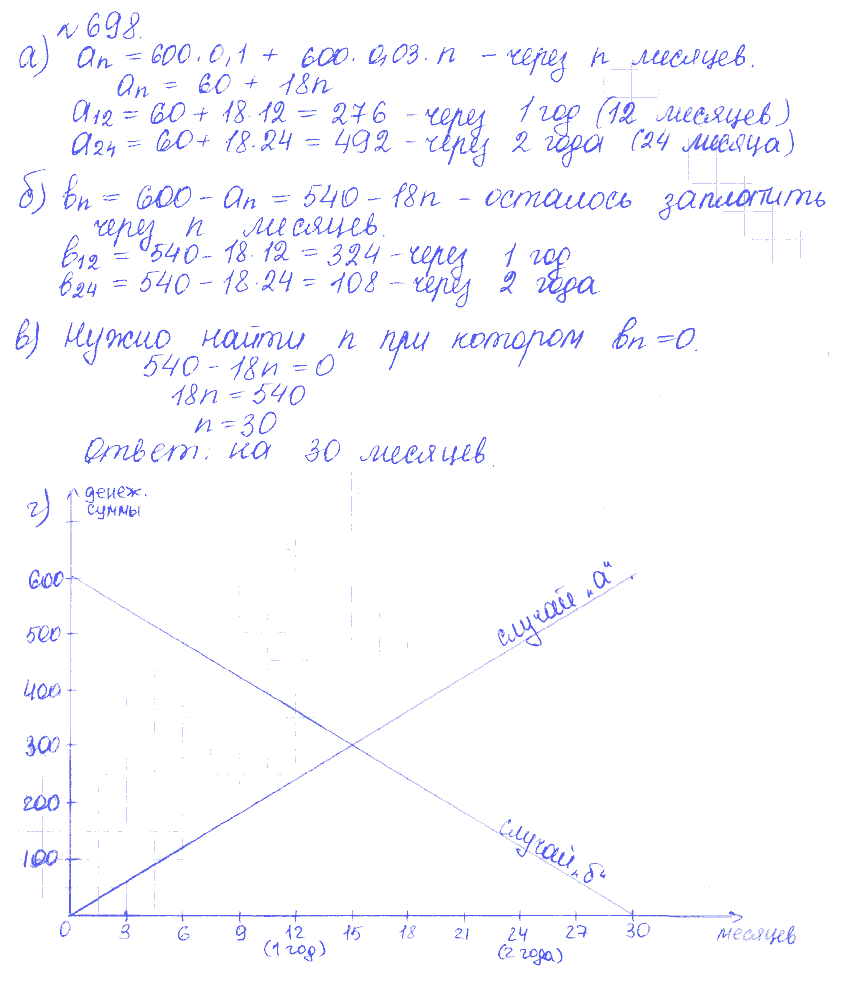 № 698.
а) an = 600·0,1 + 600·0,03·n – через n месяцев.
an = 60 + 18n
a12 = 60 + 18·12 = 276 – через 1 год (12 месяцев)
a24 = 60 + 18·24 = 492 – через 2 года (24 месяца)
б) вn = 600 – an = 540 – 18n – осталось заплатить
через n месяцев.
в12 = 540 – 18·12 = 324 – через 1 год
в24 = 540 – 18·24 = 108 – через 2 года
в) Нужно найти n при котором вn = 0.
540 – 18n = 0
18n = 540
n = 30
Ответ: на 30 месяцев.
г) денеж.
суммы
600
случай „а“
500
400
300
200
случай „б“
100
0 3 6 9 12 15 18 21 24 27 30 месяцев
(1 год) (2 года)